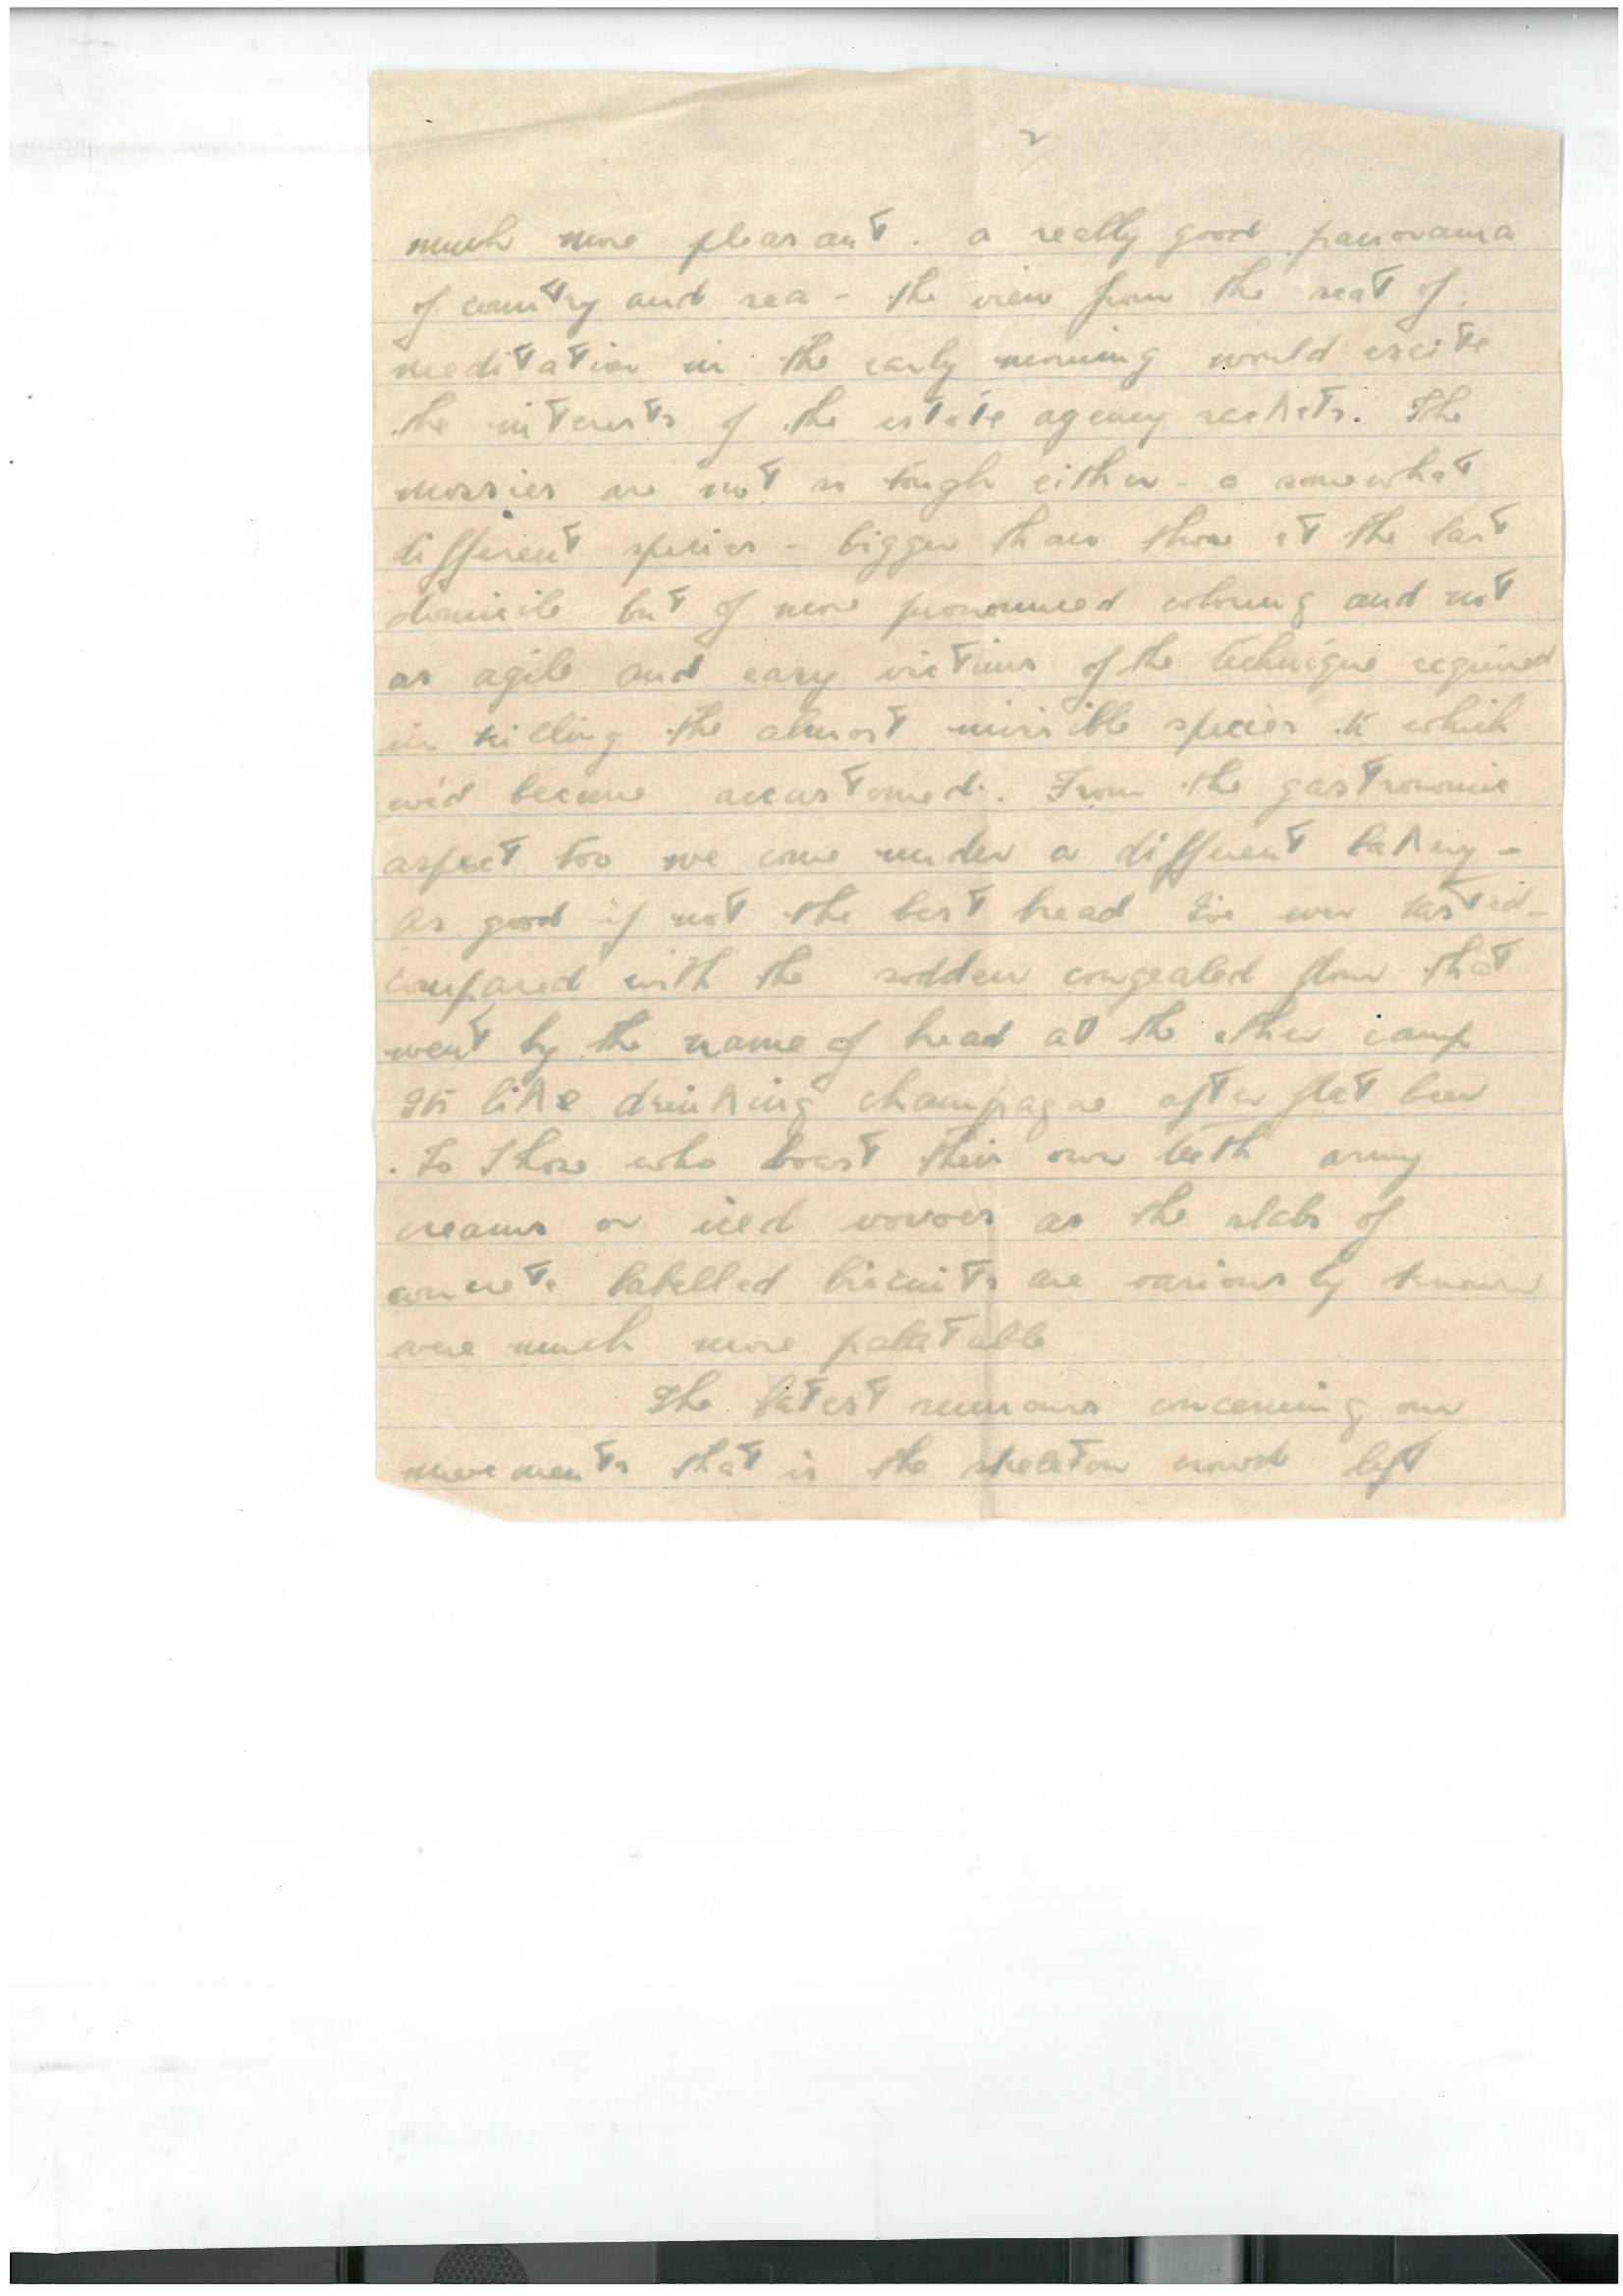 2
much more pleasant. a really good panorama
of country and sea - the view from the seat of
meditation in the early morning would excite
the interests of the estate agency rackets. The
mossies are not so tough either - a somewhat
different species - bigger than those at the last
domicile but of more pronounced coloring and not
as agile and easy victims of the technique required
in killing the almost invisible species to which
we'd become accustomed. From the gastronomic
aspect too we come under a different bakery -
as good if not the best bread I've ever tasted -
compared with the sodden congealed flour that
went by the name of bread at the other camp
Its like drinking champagne after flat beer
. To those who boast their own teeth army
creams or iced vovoes as the slabs of
concrete labelled biscuits are variously known
were much more palatable
The latest rumours concerning our
movements that is the skeleton crowd left